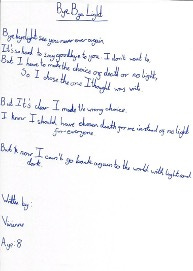 Bye Bye Light
Bye bye light see you never ever again
It's so hard to say goodbye to you. I don't want to,
But I have to make the choice of death or no light,
So I chose the one I thought was
But It's clear I made the wrong choice,
I know I should have chosen death for me instead of no light
for everyone
But now I can't go back again to the world with light and
dark.
Written by:
Age: 8